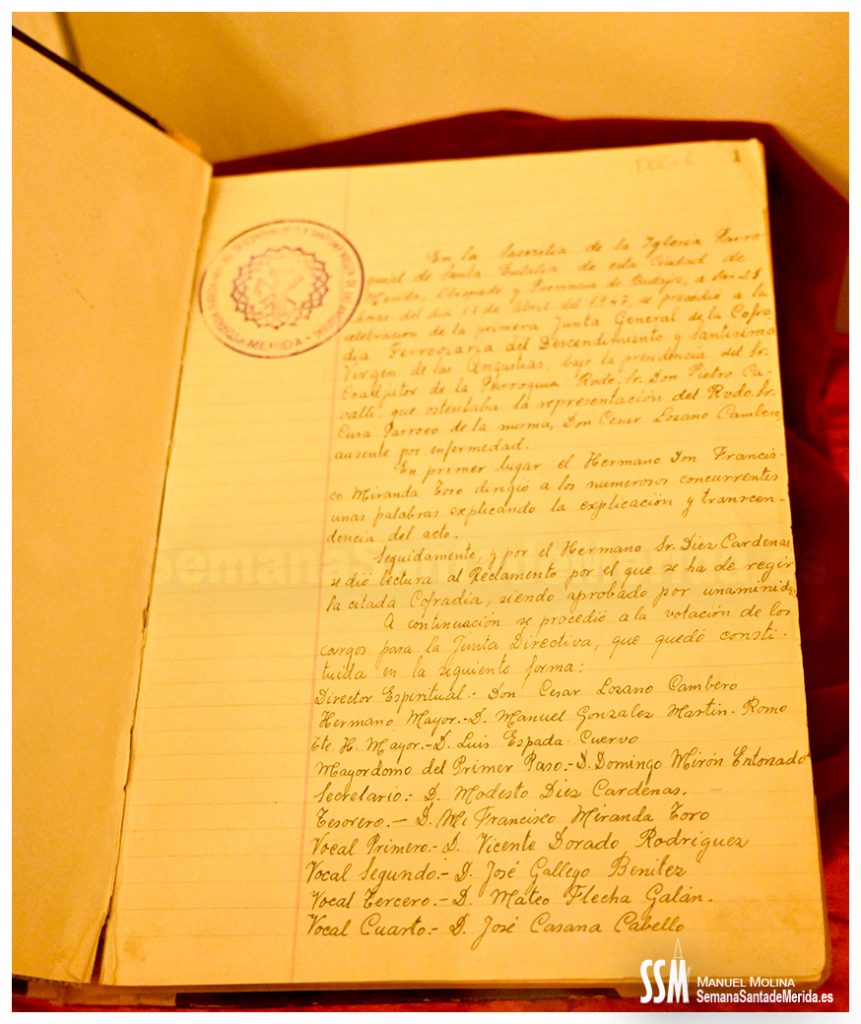 1
MERIDA
En la Sacristia de la Iglesia Parro
quial de Santa Eulalia de esta Ciudad de
Merida, Obispado y Provincia de Badajoz, a las 21
horas del dia 17 de Abril del 1947, se procedió a la
celebracion de la primera Junta General de la Cofra
dia Ferroviaria del Descendimiento y Santisima
Virgen de las Angustias, bajo la presidencia del Sr.
Coadjutor de la Parroquia Rvdo. Sr. Don Pietro Ca-
valli, que ostentaba la representación del Rvdo. Sr.
Cura Parroco de la misma, Don Cesar Lozano Cambero,
ausente por enfermedad.
En primer lugar el Hermano Don Francis-
co Miranda Toro dirigió a los numerosos concurrentes
unas palabras explicando la explicación y transcen-
dencia del acto.
Seguidamente, y por el Hermano Sr. Diez Cardenas
se dió lectura al Reclamento por el que se ha de regir
la citada Cofradia, siendo aprobado por unaminidad
A continuación se procedió a la votación de los
cargos para la Junta Directiva, que quedó consti-
tuida en la siguiente forma:
Director Espiritual.- Don Cesar Lozano Cambero
Hermano Mayor.- D. Manuel Gonzalez Martin-Romo
Tte. H. Mayor.- D. Luis Espada Cuervo
Mayordomo del Primer Paso.- D. Domingo Mirón Entonado
Secretario.- D. Modesto Diez Cardenas.
Tesorero.- D. M. Francisco Miranda Toro
Vocal Primero.- D. Vicente Dorado Rodriguez
Vocal Segundo.- D. José Gallego Benitez
Vocal Tercero.- D. Mateo Flecha Galán.
Vocal Cuarto.- D. José Casana Cabello
SSM MANUEL MOLINA
SemanaSantadeMerida.es